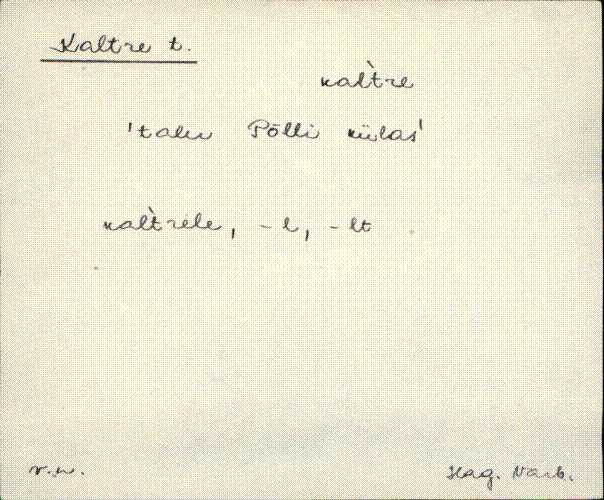 Kaltre t.
kal̀tre
'talu Põlli külas'
kal̀trele, -l, -lt
v.w.
Hag. Varb.